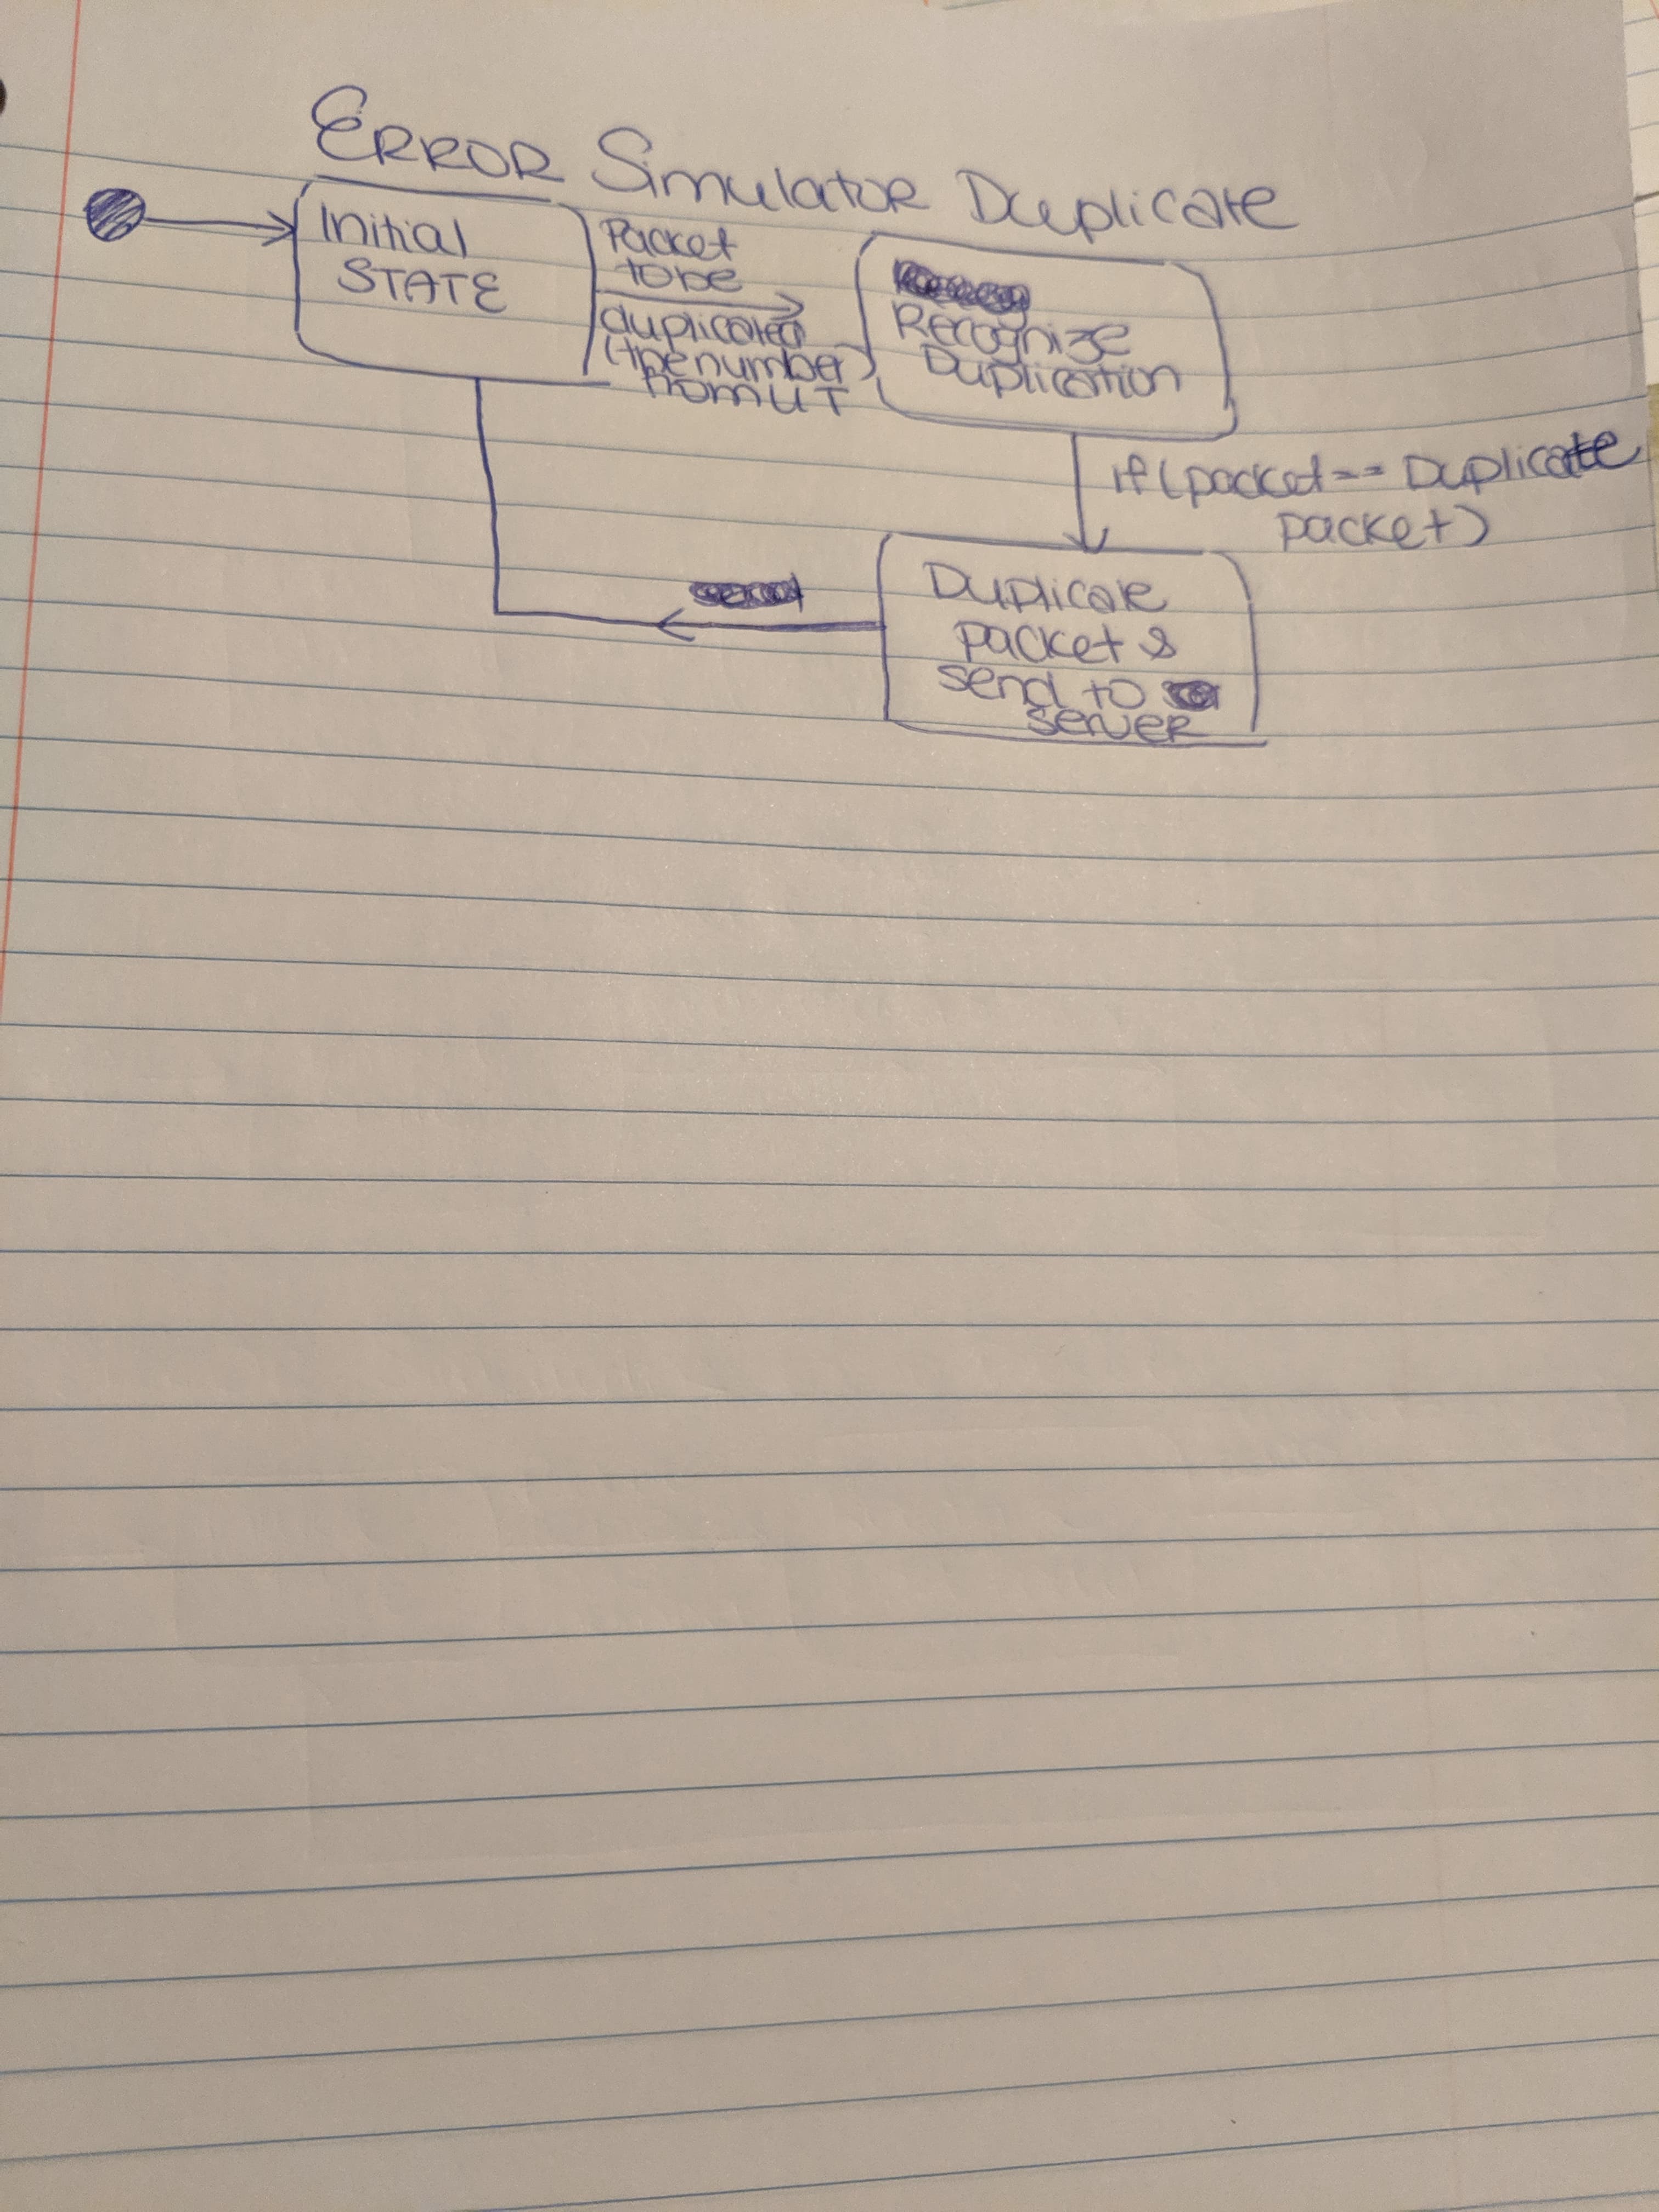 ERROR Simulator Duplicate
Initial
STATE
Packet
to be
duplicated
(the number)
from UI
Recognize
Duplication
if(packet == Duplicate
packet)
Duplicate
packet &
send to
server